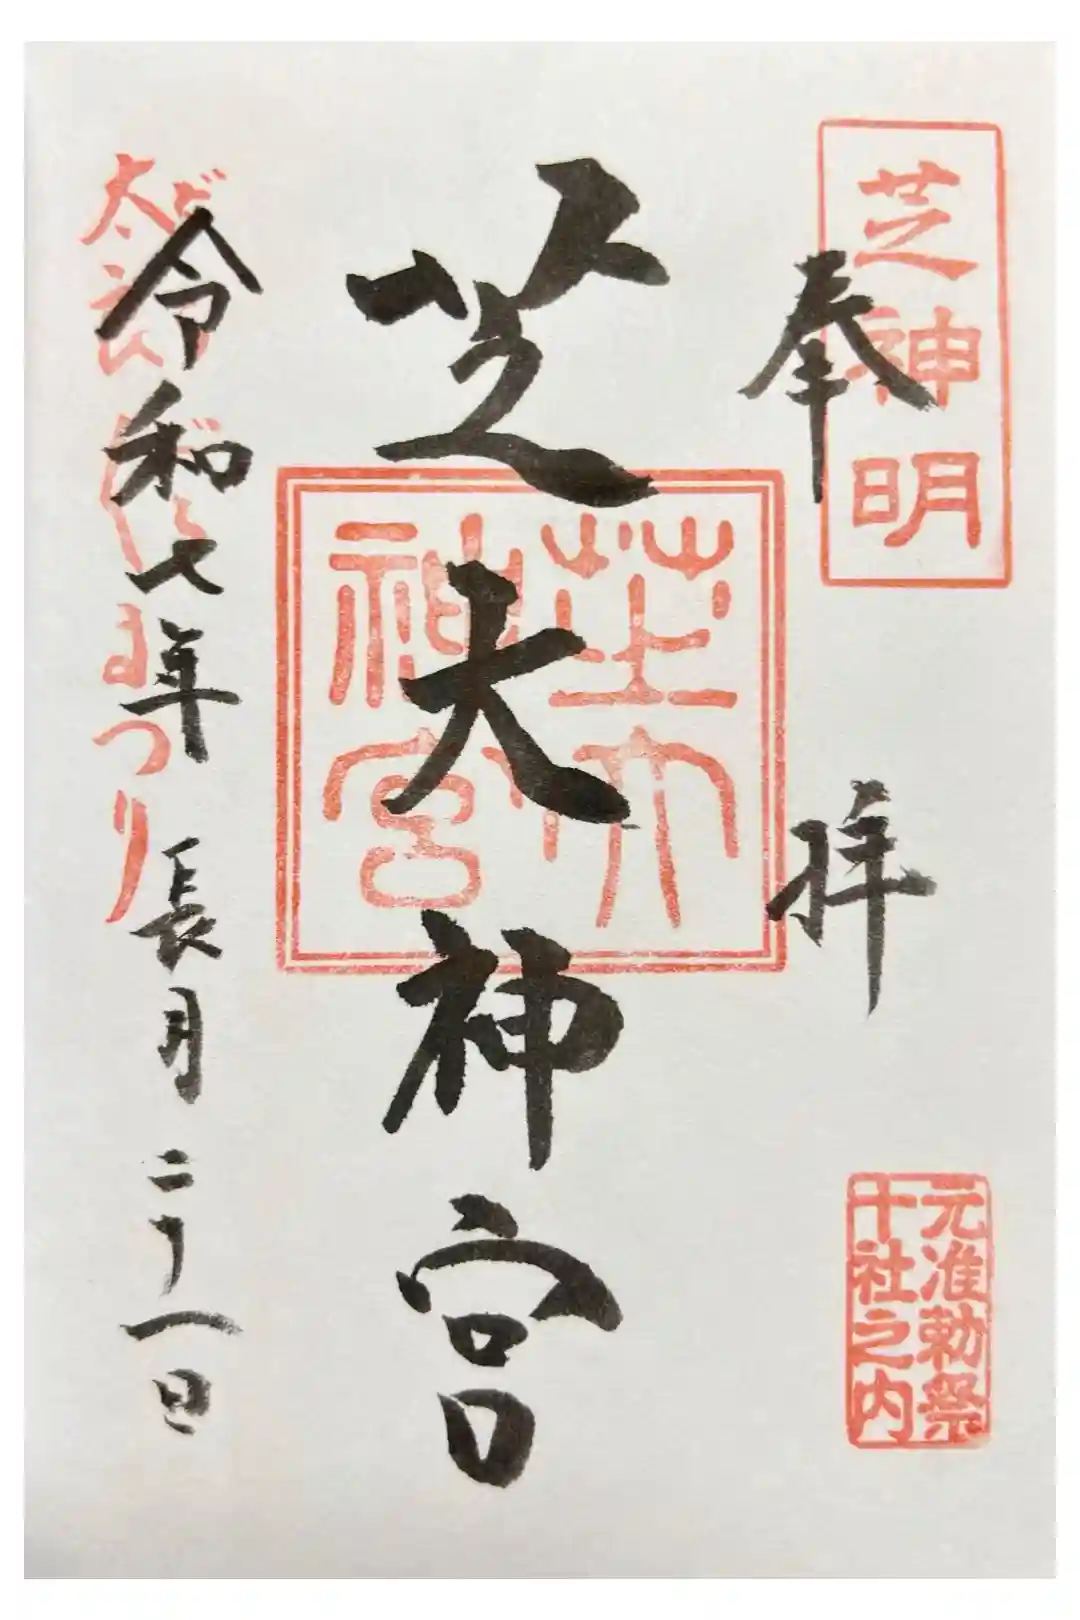 芝神明
奉拝
元准勅祭
十社之内
芝大神宮
芝大
神宮
令和七年長月二十一日
だらだらまつり